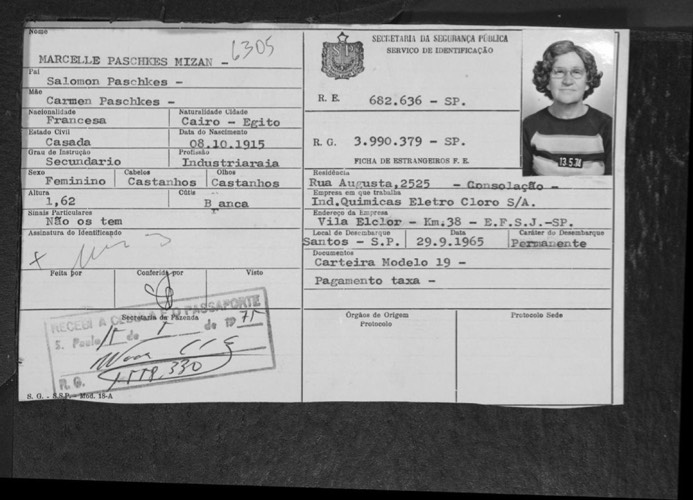 Nome
MARCELLE PASCHKES MIZAN - 6305
Pai
Salomon Paschkes -
Mãe
Carmen Paschkes -
Nacionalidade Naturalidade Cidade
Francesa Cairo - Egito
Estado Civil Data do Nascimento
Casada 08.10.1915
Grau de Instrução Profissão
Secundario Industriaraia
Sexo Cabelos Olhos
Feminino Castanhos Castanhos
Altura Cútis
1,62 B anca
Sinais Particulares
Não os tem
Assinatura do Identificando
Feita por Conferida por Visto
Secretaria da Fazenda
RECEBI A CEDULA E O PASSAPORTE
S. Paulo de de 1971
R. G.
S. G. - S.S.P. - Mod. 18-A
SECRETARIA DA SEGURANÇA PÚBLICA
SERVIÇO DE IDENTIFICAÇÃO
R. E. 682.636 - SP.
R. G. 3.990.379 - SP.
FICHA DE ESTRANGEIROS F. E.
Residência
Rua Augusta,2525 - Consolação -
Empresa em que trabalha
Ind.Quimicas Eletro Cloro S/A.
Endereço da Empresa
Vila Elclor - Km.38 - E.F.S.J.-SP.
Local de Desembarque Data Caráter do Desembarque
Santos - S.P. 29.9.1965 Permanente
Documentos
Carteira Modelo 19 -
Pagamento taxa -
Órgãos de Origem Protocolo Sede
Protocolo